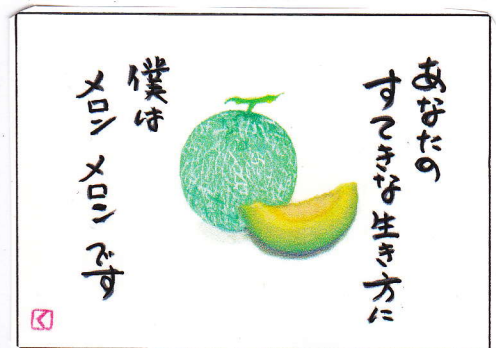 あなたの
すてきな生き方に
僕は
メロン メロン です
く